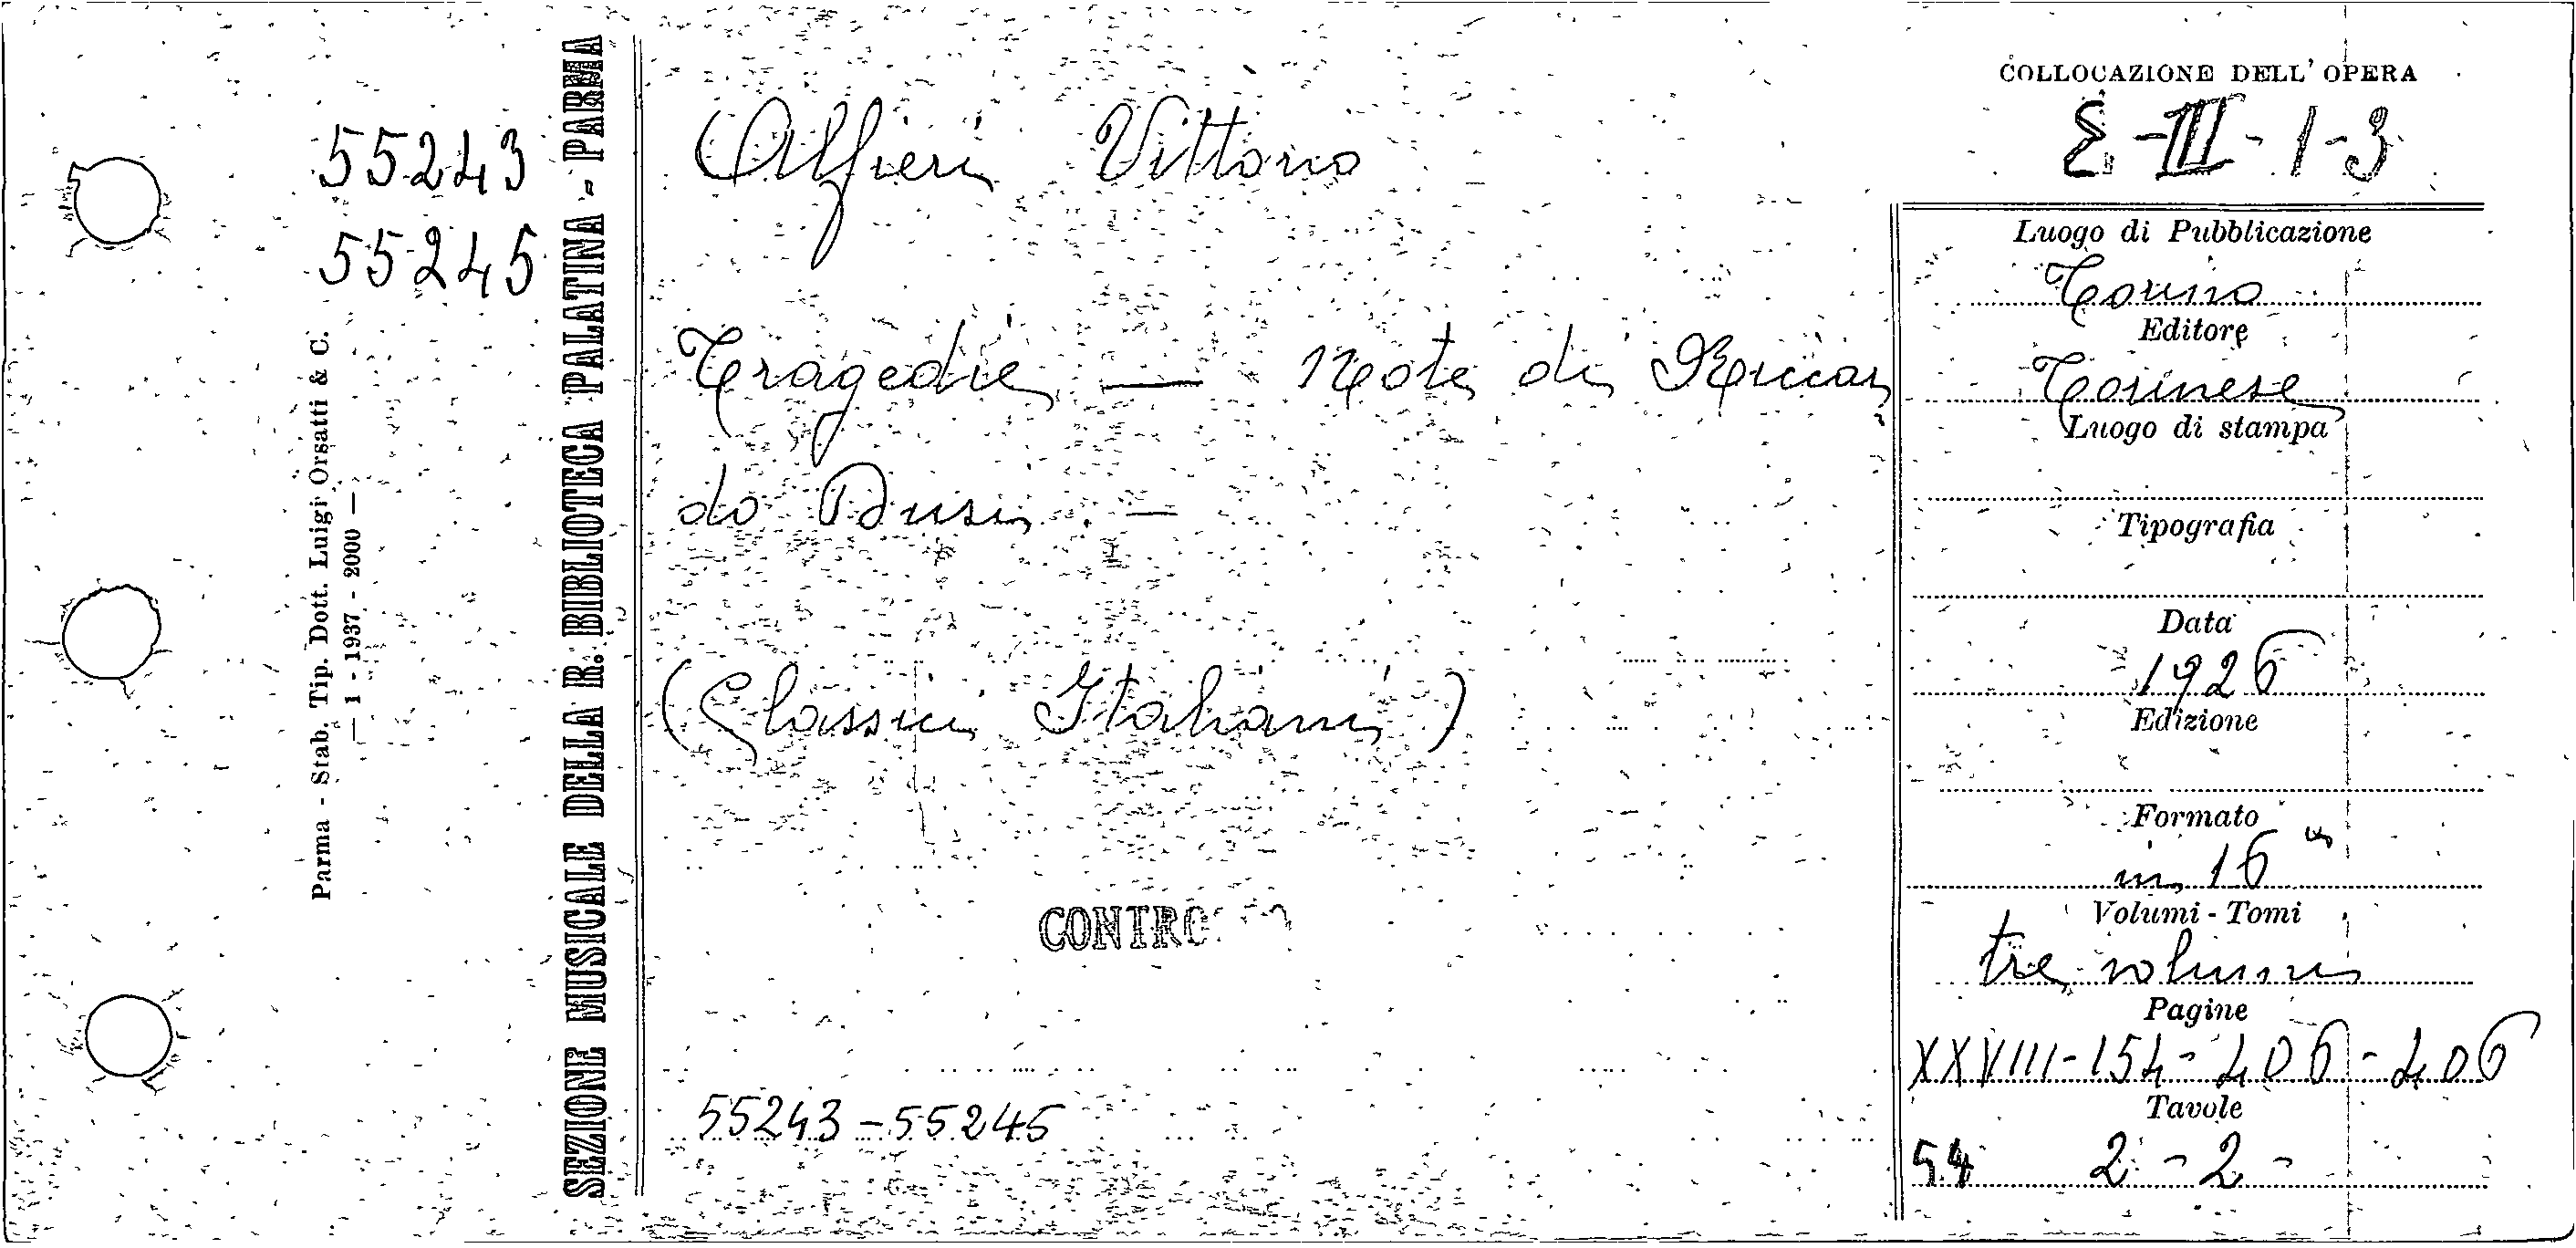 55243
55245
Parma - Stab. Tip. Dott. Luigi Orsatti & C.
— 1 - 1937 - 2000 —
SEZIONE MUSICALE DELLA R. BIBLIOTECA PALATINA - PARMA
Alfieri Vittorio
Tragedie — Note di Riccar
do Dusi. —
(Classici Italiani)
55243 - 55245
COLLOCAZIONE DELL' OPERA
E - III - 1-3
Luogo di Pubblicazione
Torino
Editore
Torinese
Luogo di stampa
Tipografia
Data
1926
Edizione
Formato
in 16
Volumi - Tomi
tre volumi
Pagine
XXVIII-154-406-406
Tavole
54 2 - 2 -